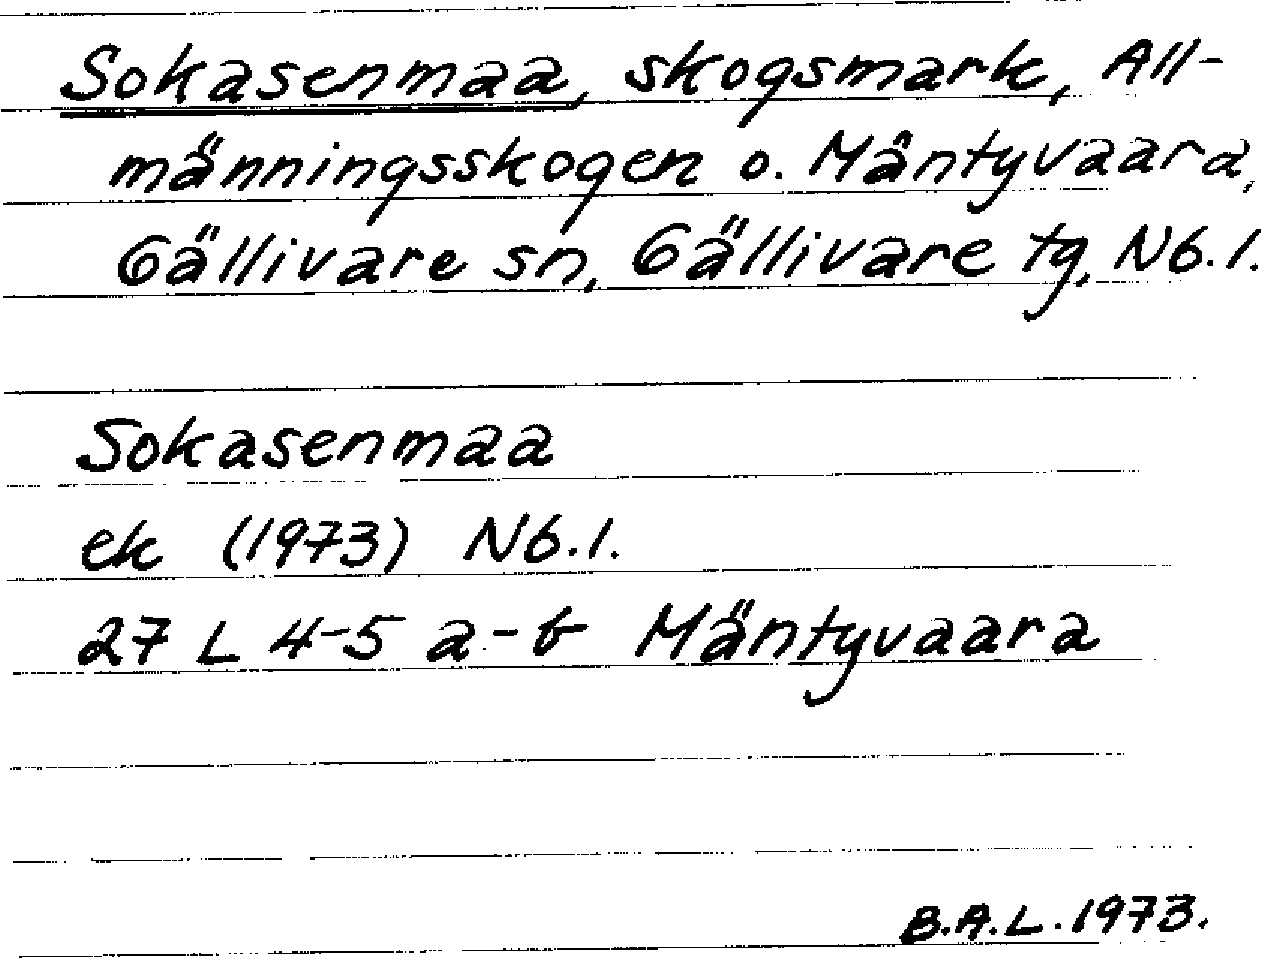 Sokasenmaa, skogsmark, All-
männingsskogen o. Mäntyvaara,
Gällivare sn, Gällivare tg, Nb.l.
Sokasenmaa
ek (1973) Nb.l.
27 L 4-5 a-b Mäntyvaara
B.A.L. 1973.